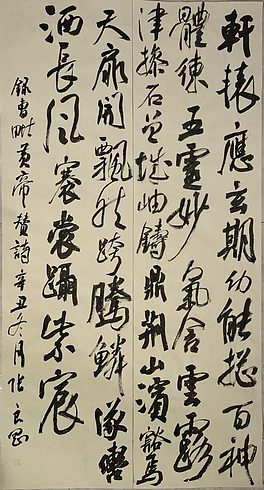 軒轅應玄期幼能揔百神
體練五靈妙氣含雲露
津摻石曾城岫鑄鼎荊山濱豁焉
天扉開飄然跨騰鱗轡
洒長風褰裳躡紫宸
錄曹毗黄帝赞詩辛丑冬月張良